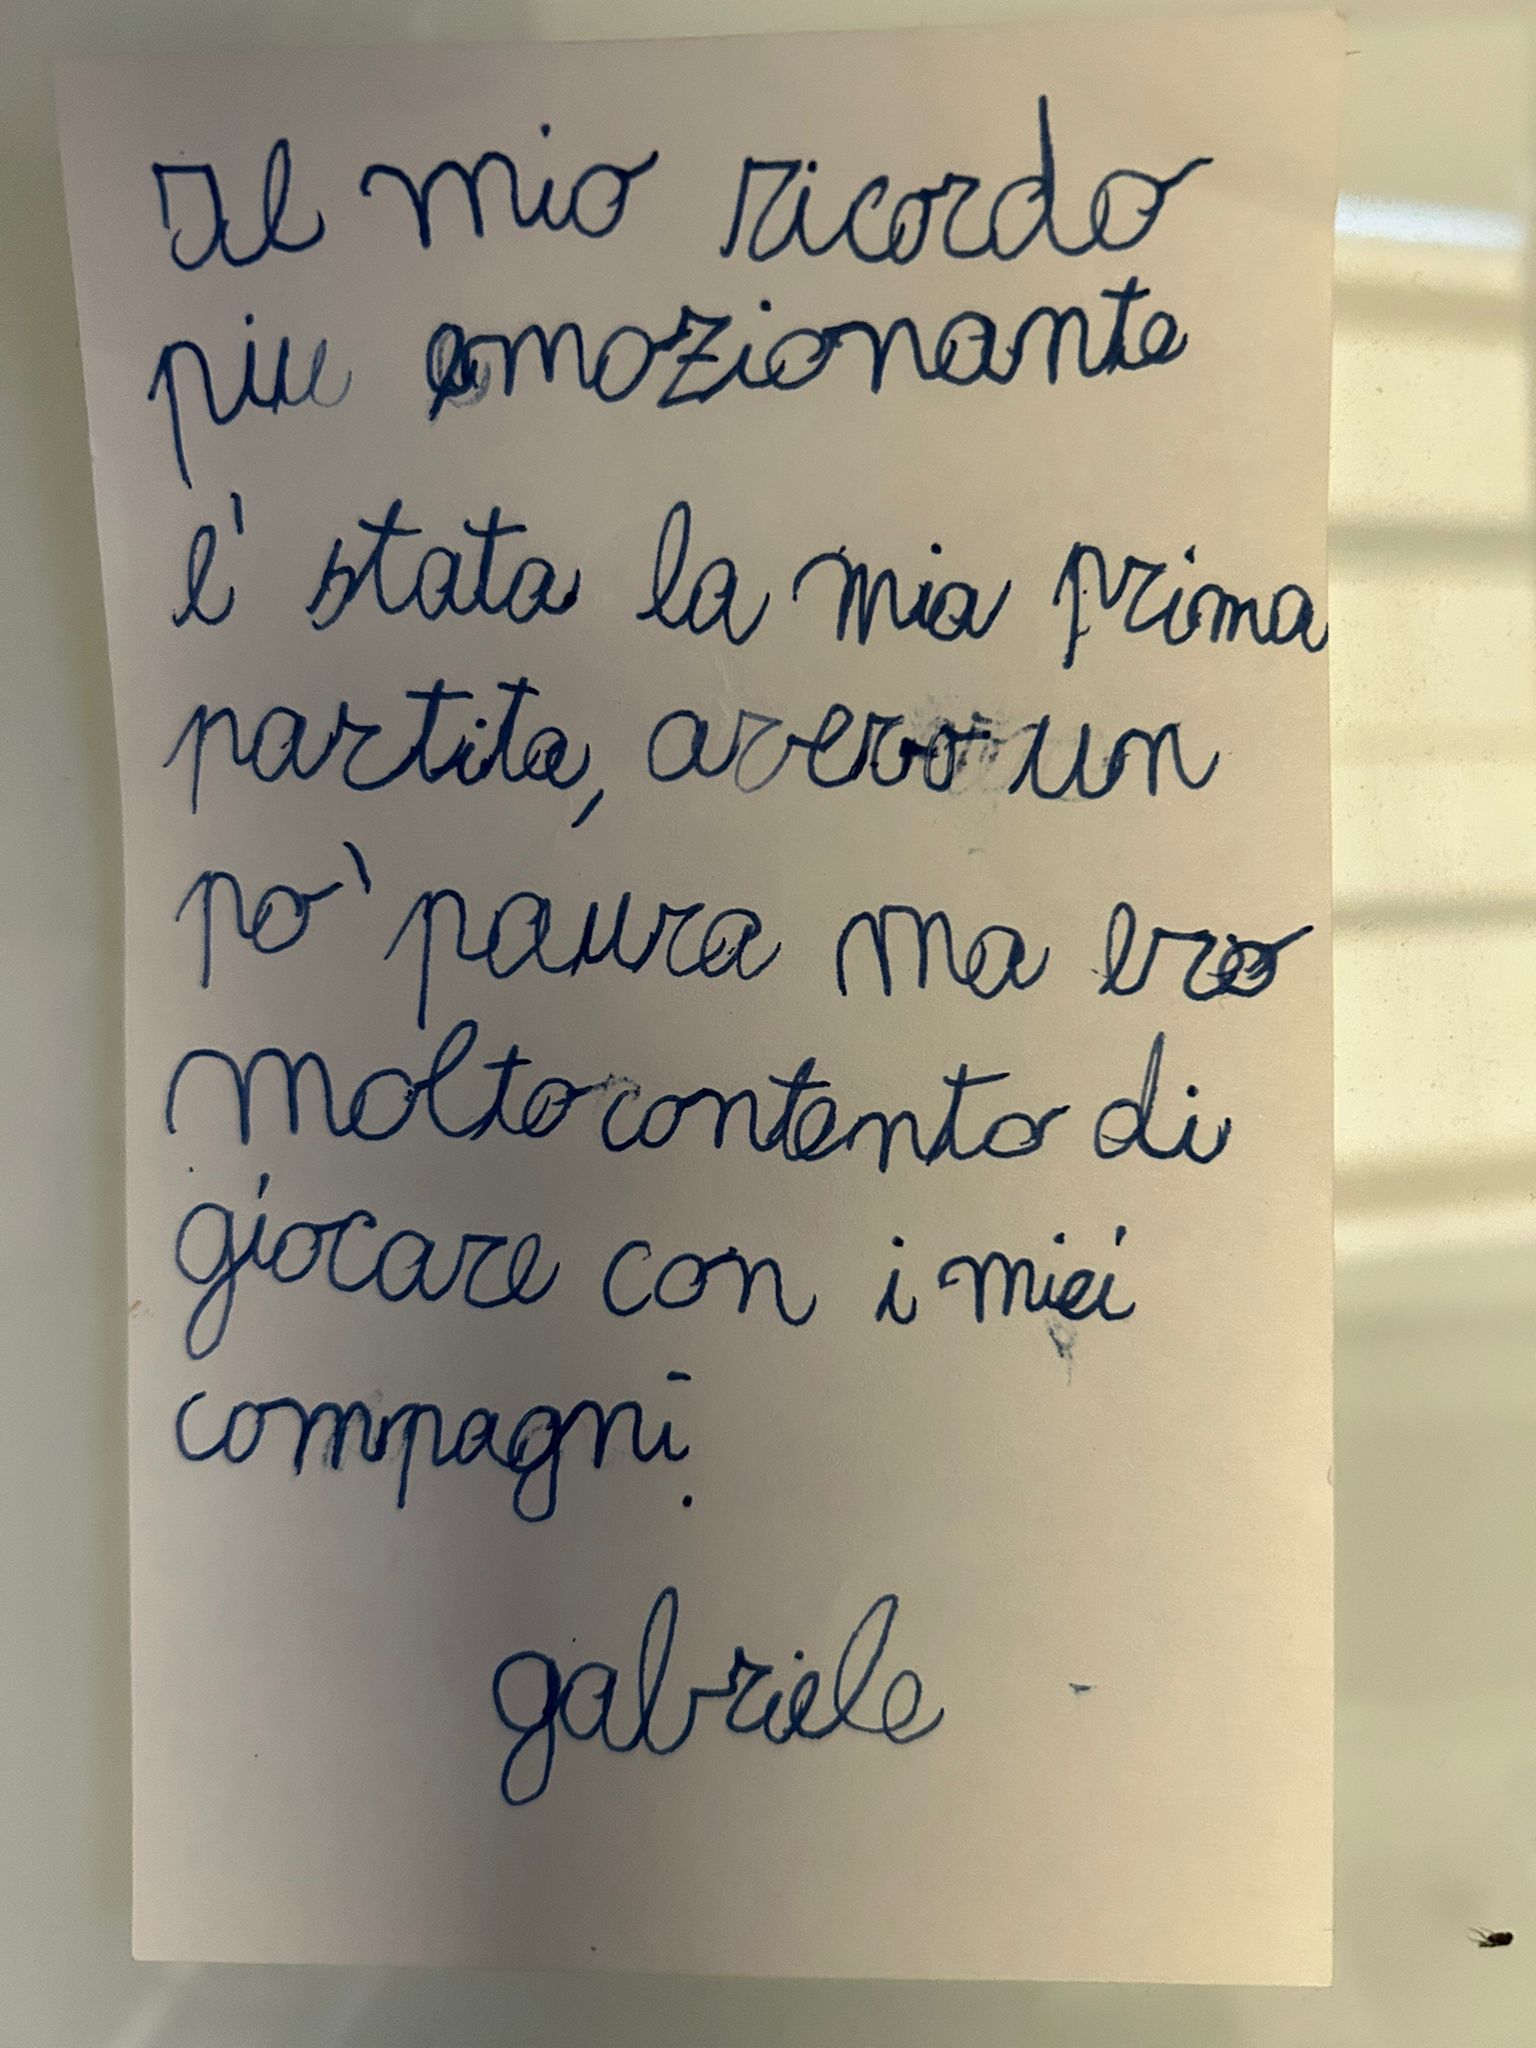 Il mio ricordo
piu emozionante
e' stata la mia prima
partita, avevo un
po' paura ma ero
molto contento di
giocare con i miei
compagni.
gabriele